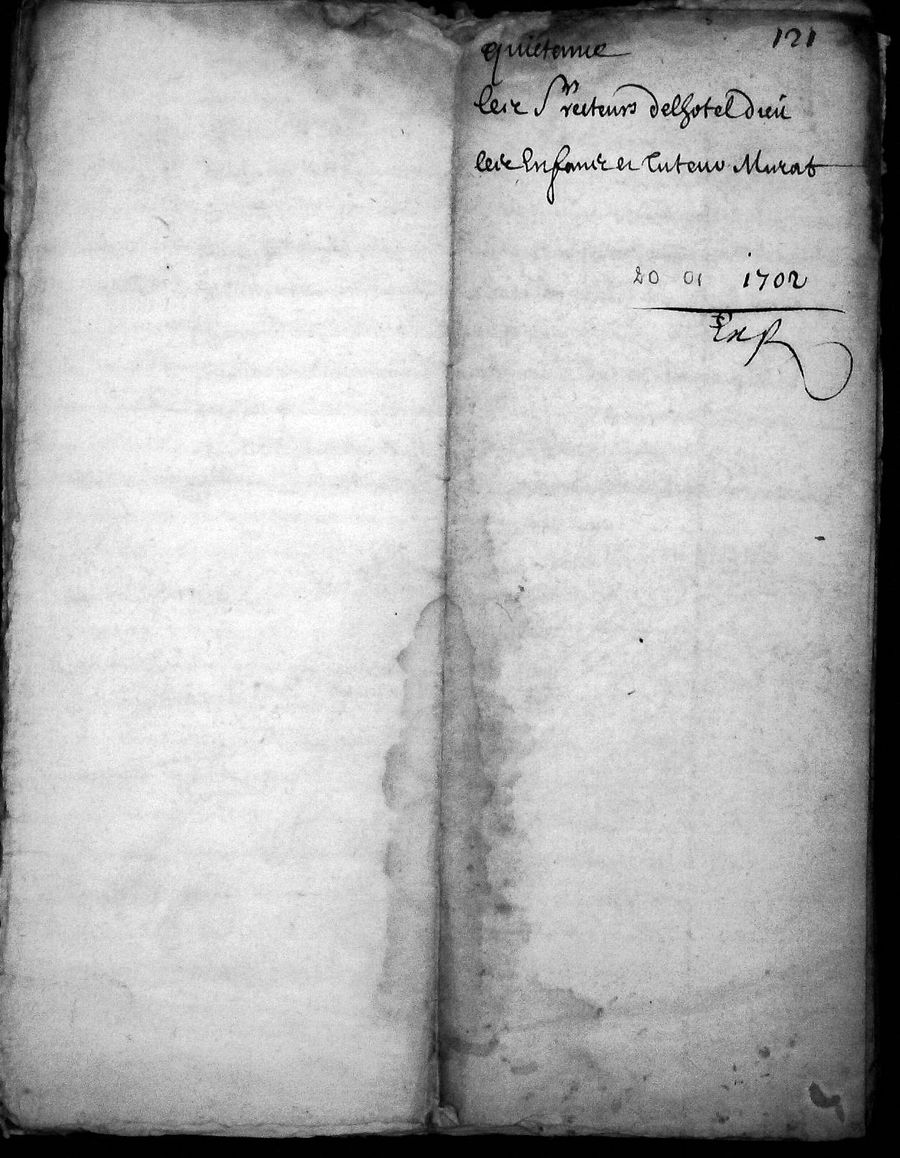 121
quictanne
les Srs recteurs delhotel dieu
les Enfans et tuteur Murat
20 01 1702
Exp